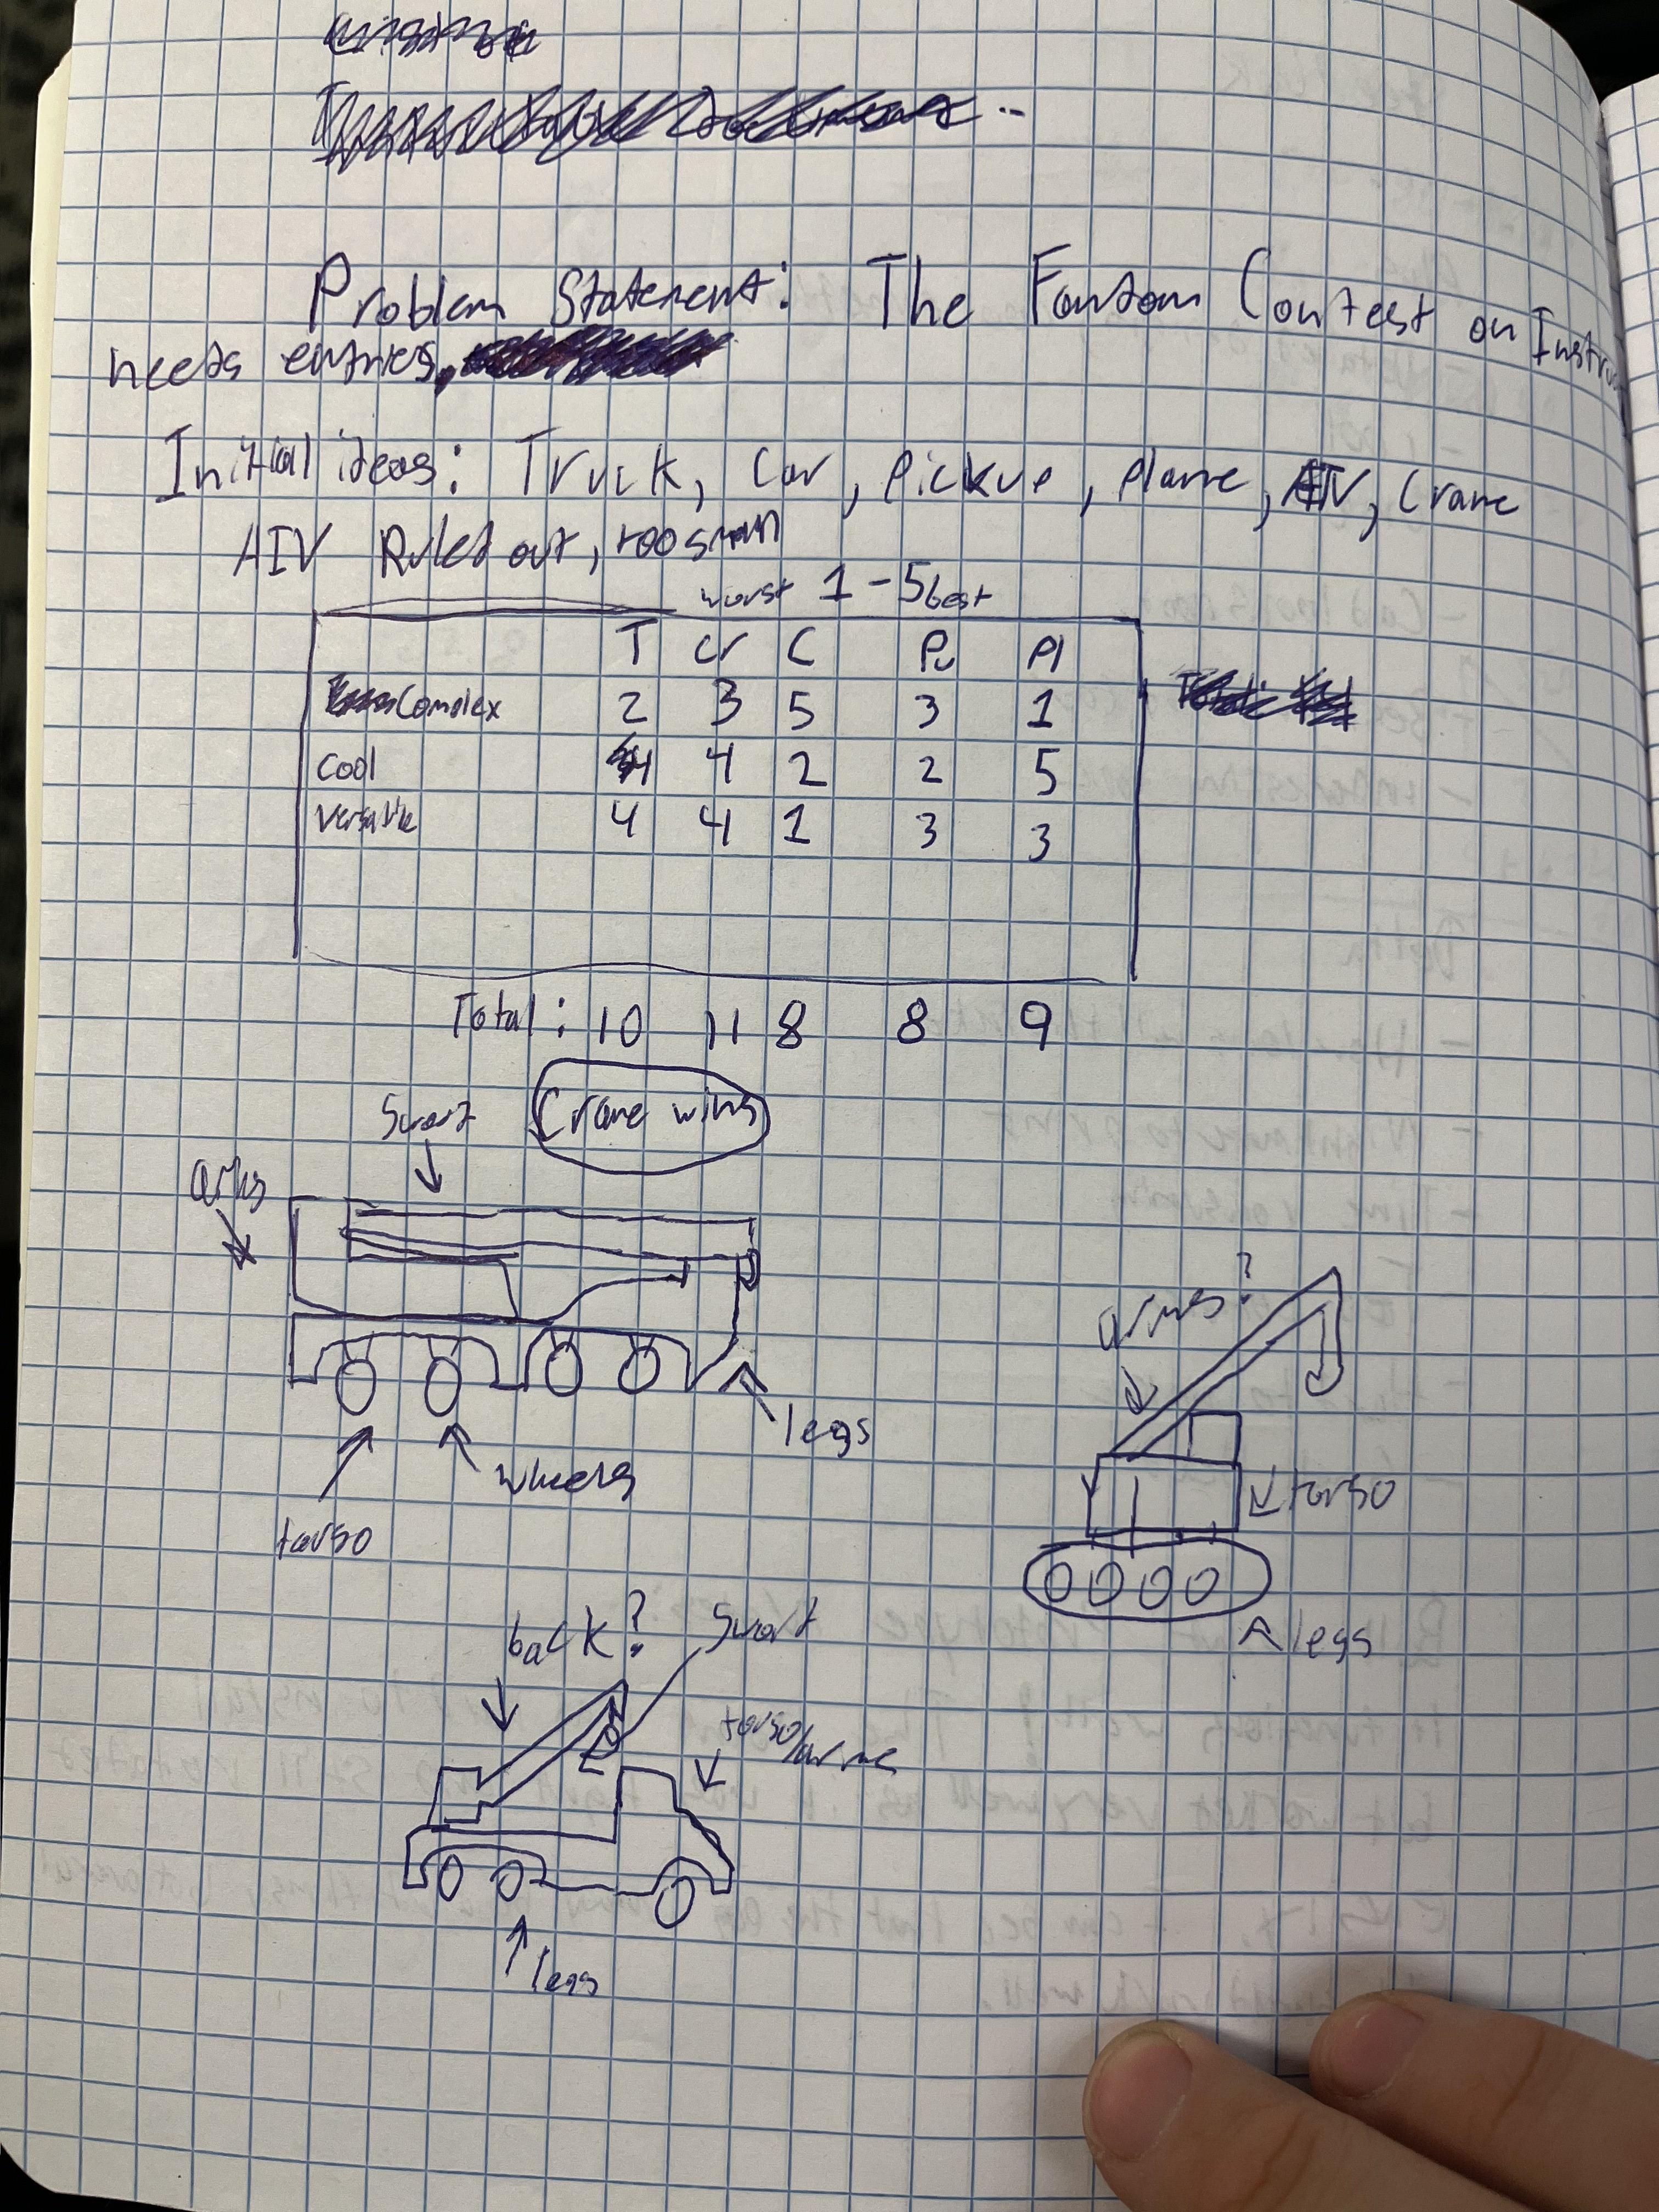 Problem Statement: The Fantom Contest on Instru
needs entries.
Initial ideas: Truck, Car, Pickup, Plane, ATV, Crane
ATV Ruled out, too small
worst 1-5 best
T Cr C Pu Pl
Complex 2 3 5 3 1
Cool 4 4 2 2 5
Versatile 4 4 1 3 3
Total: 10 11 8 8 9
Sword
Crane wins
arms
legs
wheels
torso
arms?
torso
legs
back? Sword
torso/arms
legs